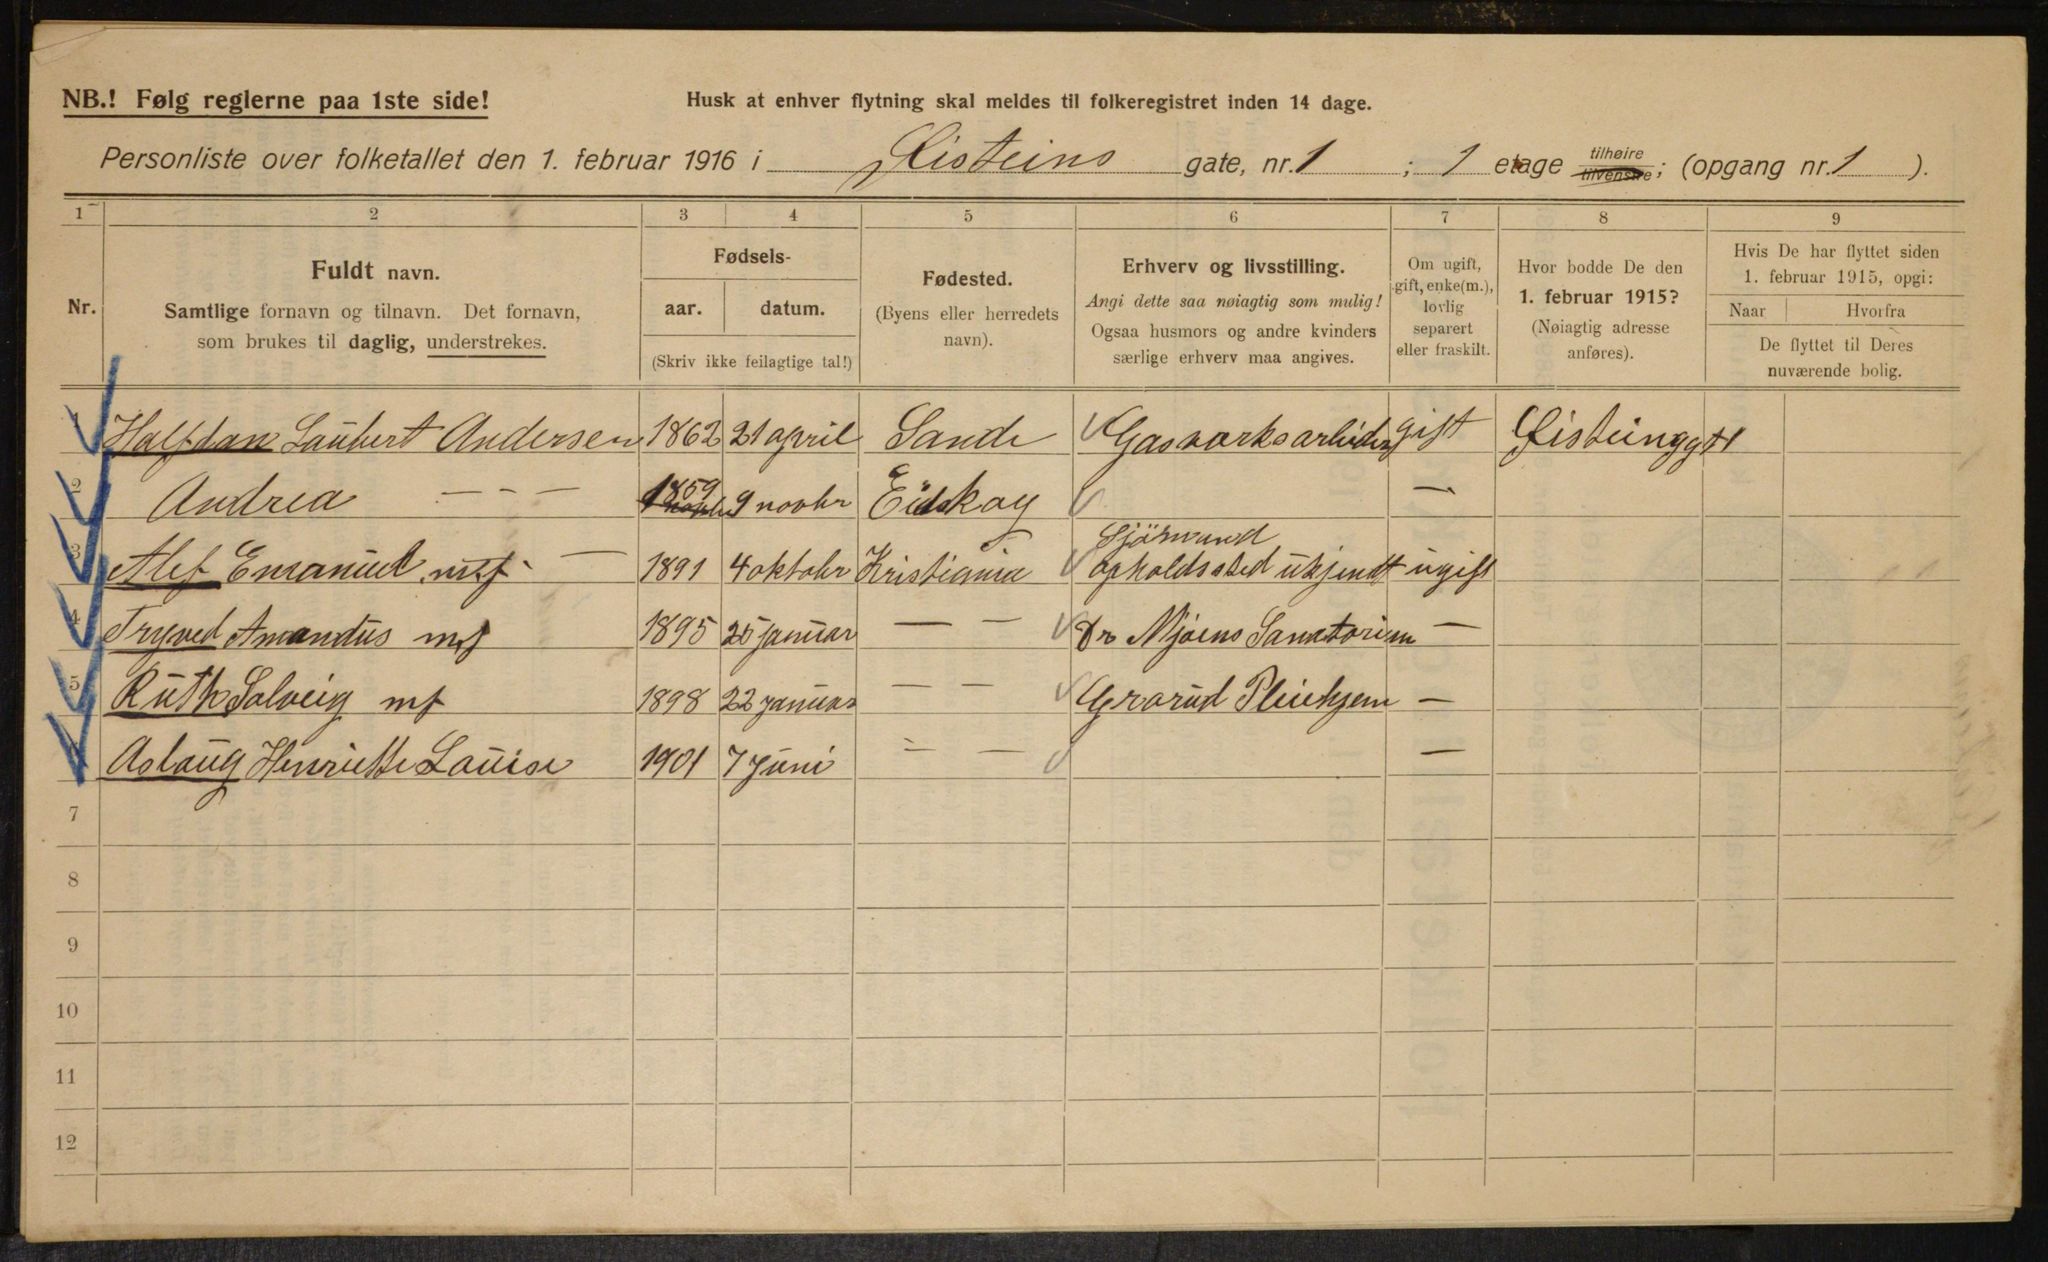 NB.! Følg reglerne paa 1ste side!
Husk at enhver flytning skal meldes til folkeregistret inden 14 dage.
Personliste over folketallet den 1. februar 1916 i Øisteins gate, nr. 1 ; 1 etage tilhøire tilvenstre; (opgang nr. 1 ).
1 2 3 4 5 6 7 8 9
Nr.
Fuldt navn.
Samtlige fornavn og tilnavn. Det fornavn,
som brukes til daglig, understrekes.
Fødsels-
aar. datum.
(Skriv ikke feilagtige tal!)
Fødested.
(Byens eller herredets
navn).
Erhverv og livsstilling.
Angi dette saa nøiagtig som mulig!
Ogsaa husmors og andre kvinders
særlige erhverv maa angives.
Om ugift,
gift, enke(m.),
lovlig
separert
eller fraskilt.
Hvor bodde De den
1. februar 1915?
(Nøiagtig adresse
anføres).
Hvis De har flyttet siden
1. februar 1915, opgi:
Naar Hvorfra
De flyttet til Deres
nuværende bolig.
1 Halfdan Laubert Andersen 1862 21 april Sande Gasverksarbider gift Øisteinsgt 1
2 Andrea — - — 1859 9 novbr Eidskog —
3 Alef Emanuel — 1891 4 oktobr Kristiania Sjömand opholdssted ukjendt ugift
4 Trygved Amandus 1895 25 januar — — Dr Mjøens Sanatorium —
5 Ruth Solveig 1898 22 januar — — Grorud Pleiehjem —
6 Aslaug Henriette Louise 1901 7 juni — — —
7
8
9
10
11
12